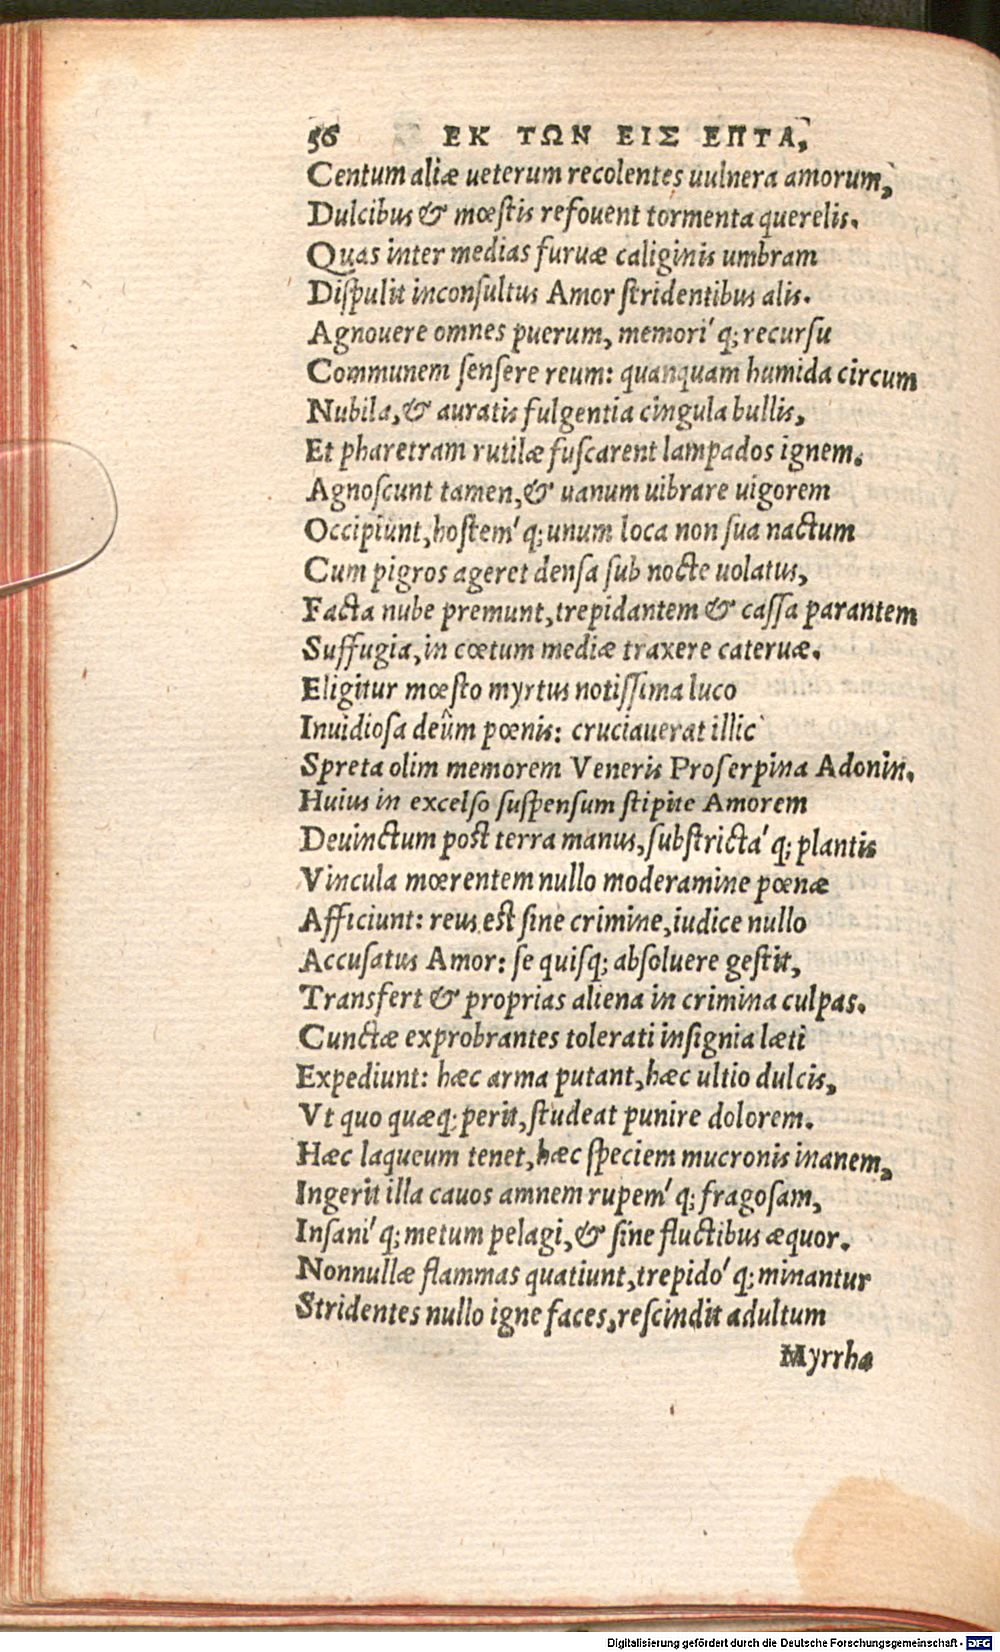 56 ΕΚ ΤΩΝ ΕΙΣ ΕΠΤΑ,
Centum aliæ ueterum recolentes uulnera amorum,
Dulcibus & mœstis refouent tormenta querelis.
Quas inter medias furuæ caliginis umbram
Dispulit inconsultus Amor stridentibus alis.
Agnouere omnes puerum, memori´q; recursu
Communem sensere reum: quanquam humida circum
Nubila, & auratis fulgentia cingula bullis,
Et pharetram rutilæ fuscarent lampados ignem.
Agnoscunt tamen, & uanum uibrare uigorem
Occipiunt, hostem´q; unum loca non sua nactum
Cum pigros ageret densa sub nocte uolatus,
Facta nube premunt, trepidantem & cassa parantem
Suffugia, in cœtum mediæ traxere cateruæ.
Eligitur mœsto myrtus notissima luco
Inuidiosa deûm pœnis: cruciauerat illic
Spreta olim memorem Veneris Proserpina Adonin.
Huius in excelso suspensum stipite Amorem
Deuinctum post terra manus, substricta´q; plantis
Vincula mœrentem nullo moderamine pœnæ
Afficiunt: reus est sine crimine, iudice nullo
Accusatus Amor: se quisq; absoluere gestit,
Transfert & proprias aliena in crimina culpas.
Cunctæ exprobrantes tolerati insignia læti
Expediunt: hæc arma putant, hæc ultio dulcis,
Vt quo quæq; perit, studeat punire dolorem.
Hæc laqueum tenet, hæc speciem mucronis inanem,
Ingerit illa cauos amnem rupem´q; fragosam,
Insani´q; metum pelagi, & sine fluctibus æquor.
Nonnullæ flammas quatiunt, trepido´q; minantur
Stridentes nullo igne faces, rescindit adultum
Myrrha
Digitalisierung gefördert durch die Deutsche Forschungsgemeinschaft - DFG